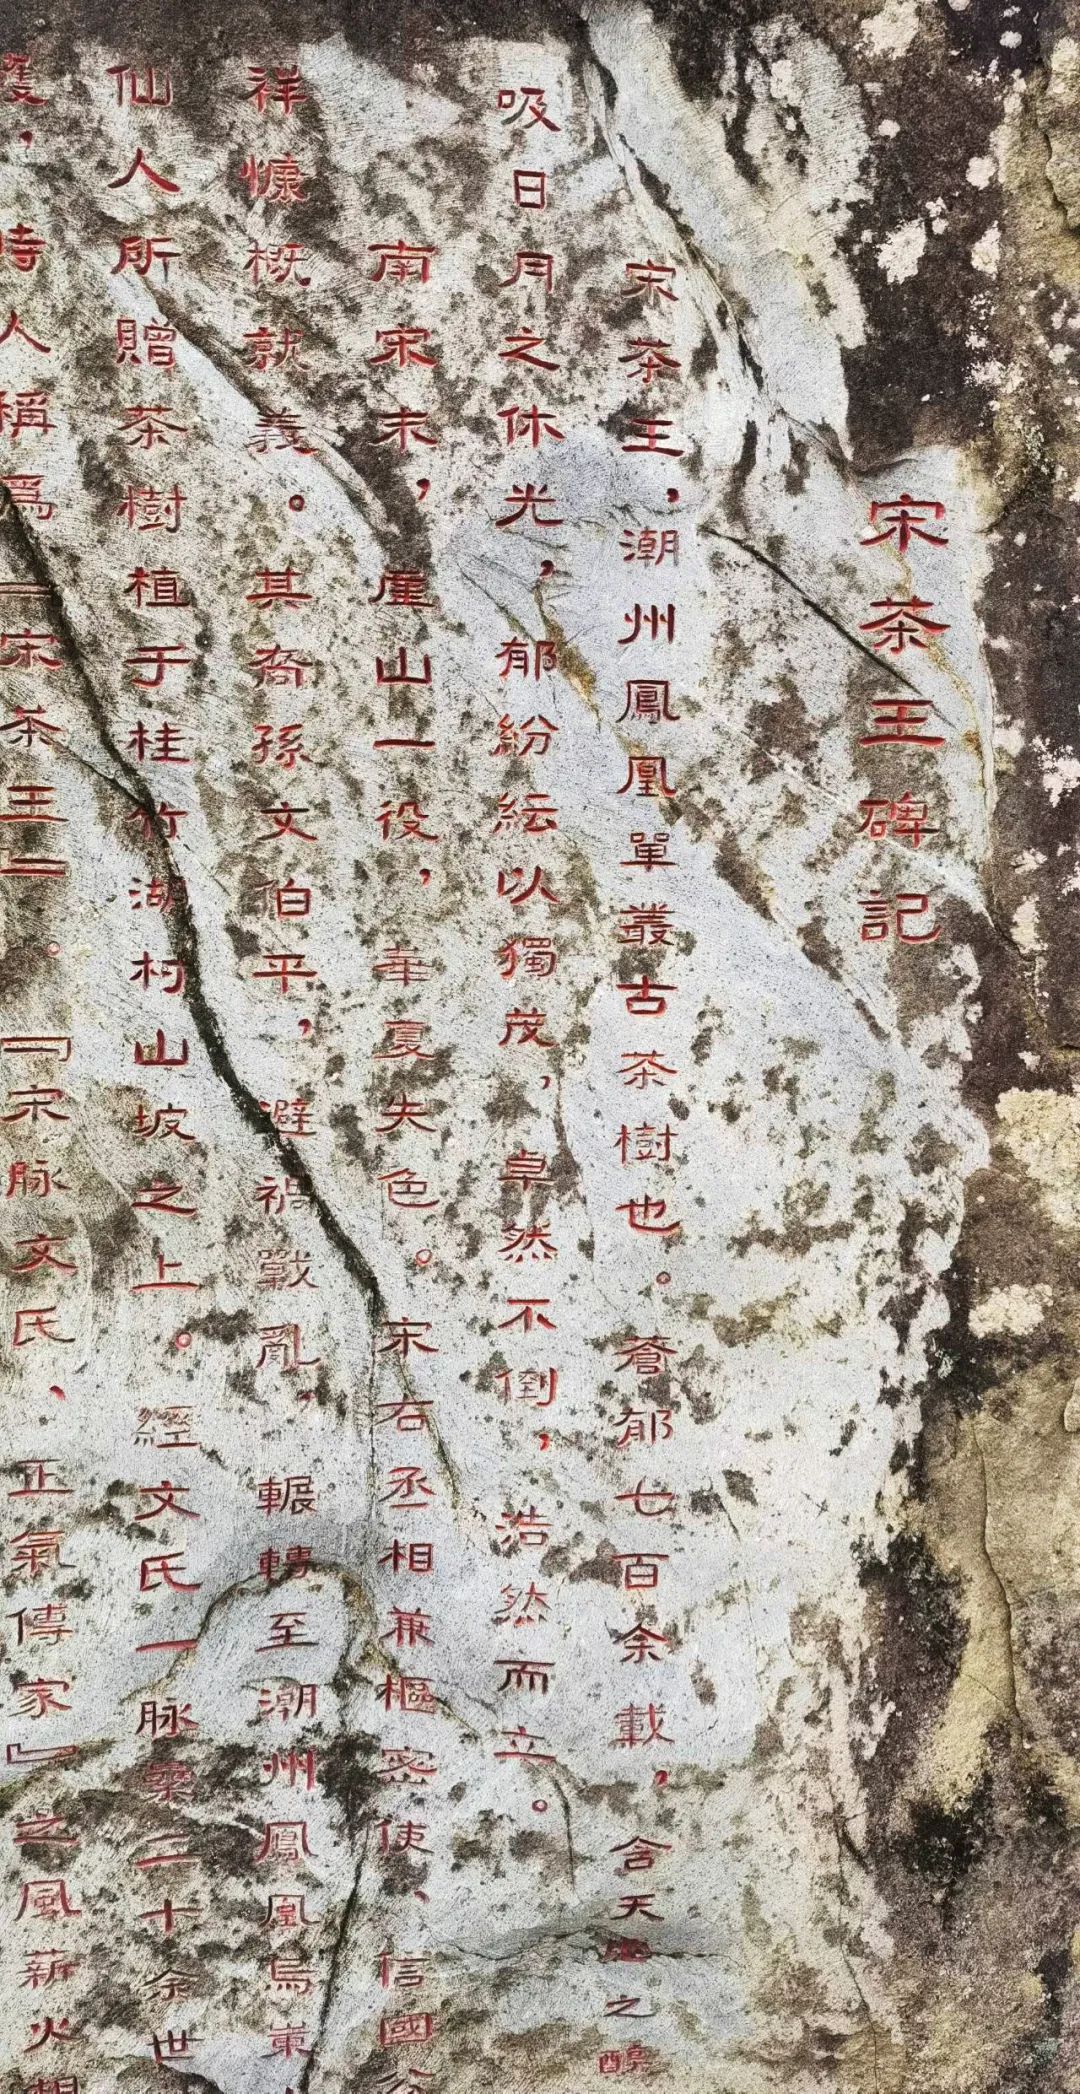 宋茶王碑記
宋茶王，潮州鳳凰單叢古茶樹也。蒼郁七百余載，含天地之醇
吸日月之休光，郁紛紜以獨茂，卓然不倒，浩然而立。
南宋末，崖山一役，華夏失色。宋右丞相兼樞密使、信國公
祥慷慨就義。其裔孫文伯平，避禍戰亂，輾轉至潮州鳳凰烏崬
仙人所贈茶樹植于桂竹湖村山坡之上。經文氏一脉桑二十余世
護，時人稱爲『宋茶王』。『宋脉文氏、正氣傳家』之風薪火相